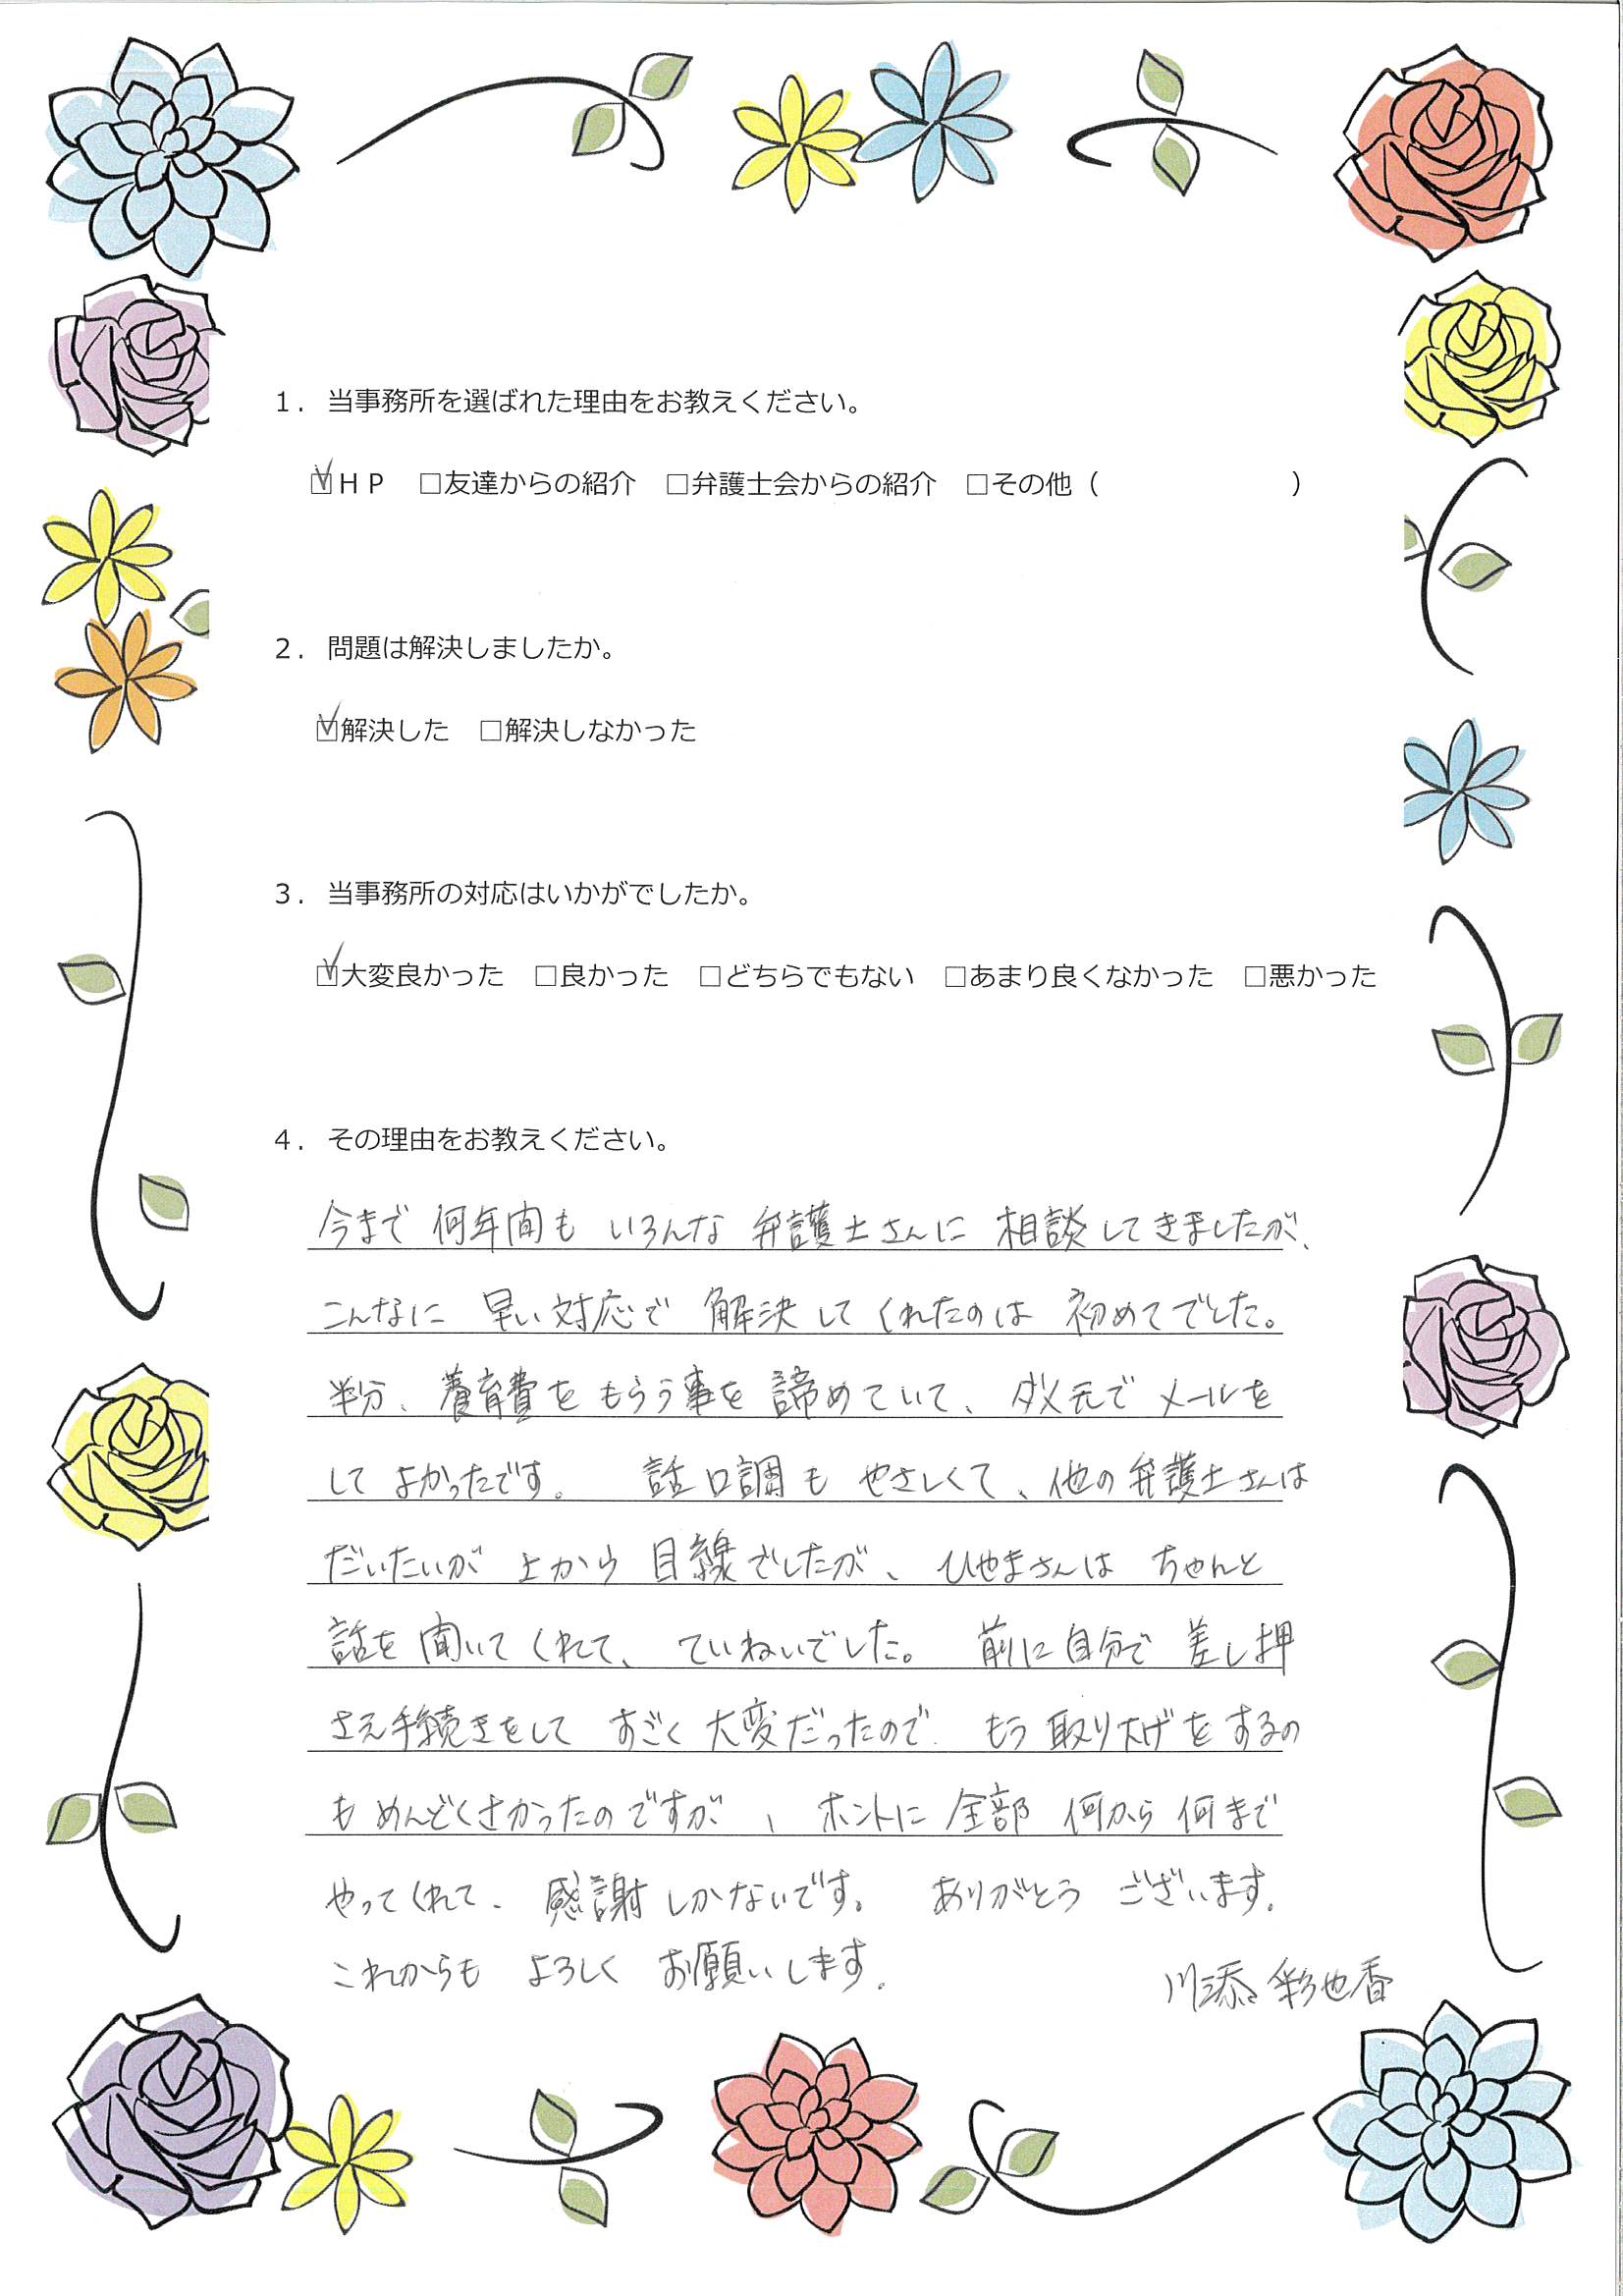 １．当事務所を選ばれた理由をお教えください。
☑ＨＰ　□友達からの紹介　□弁護士会からの紹介　□その他（　　　　　　　）
２．問題は解決しましたか。
☑解決した　□解決しなかった
３．当事務所の対応はいかがでしたか。
☑大変良かった　□良かった　□どちらでもない　□あまり良くなかった　□悪かった
４．その理由をお教えください。
今まで 何年間も いろんな 弁護士さんに 相談してきましたが、
こんなに 早い対応で 解決してくれたのは 初めてでした。
半分、養育費を もらう事を 諦めていて、ダメ元で メールを
して よかったです。 話口調も やさしくて、他の弁護士さんは
だいたいが 上から 目線でしたが、ひやまさんは ちゃんと
話を 聞いて くれて、ていねいでした。 前に自分で 差し押
さえ手続きをして すごく 大変だったので、もう 取り下げを するの
も めんどくさかったのですが、ホントに 全部 何から 何まで
やってくれて、感謝しかないです。 ありがとう ございます。
これからも よろしく お願いします。
川添 彩也香